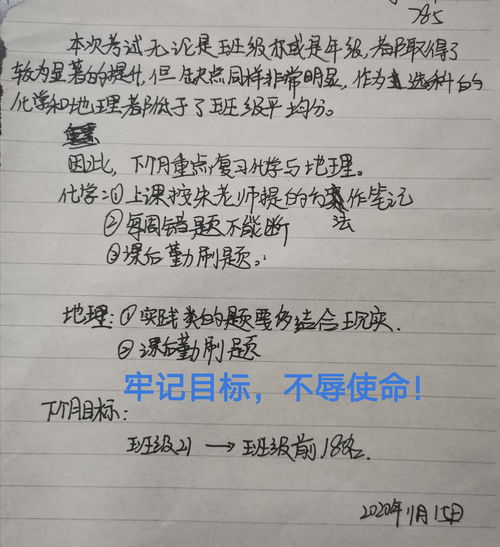 785
本次考试无论是班级亦或是年级,都取得了
较为显著的提升,但缺点同样非常明显,作为选科的
化学和地理都低于了班级平均分。
因此,下个月重点复习化学与地理。
化学:①上课按朱老师提的方法作笔记
②每周错题不能断
③课后勤刷题。
地理:①实践类的题要多结合现实.
②课后勤刷题
牢记目标,不辱使命!
下个月目标:
班级21→班级前18名.
2020年11月15日